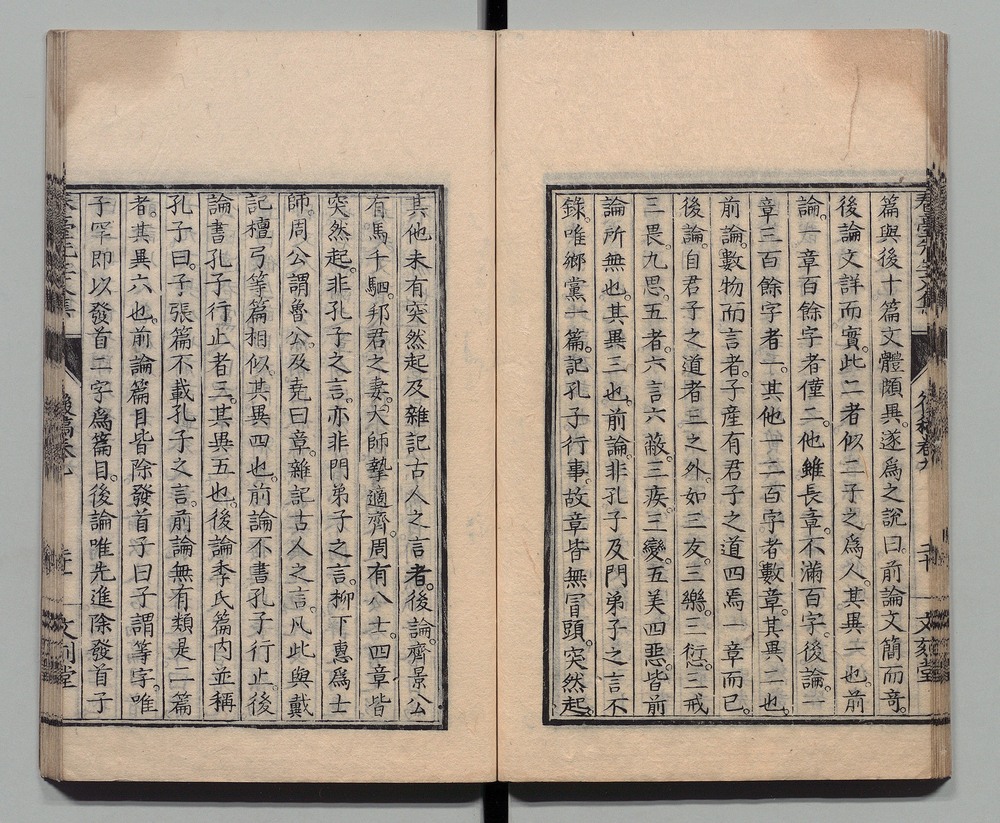 篇與後十篇文體頗異。遂爲之說曰。前論文簡而奇。
後論文詳而實。此二者似二子之爲人。其異一也。前
論。一章百餘字者僅二。他雖長章。不滿百字。後論。一
章三百餘字者一。其他一二百字者數章。其異二也。
前論。數物而言者。子產有君子之道四焉一章而已。
後論。自君子之道者三之外。如三友。三樂。三愆。三戒
三畏。九思。五者。六言六蔽。三疾。三變。五美四惡。皆前
論所無也。其異三也。前論。非孔子及門弟子之言不
錄。唯鄉黨一篇。記孔子行事。故章皆無冒頭。突然起。
其他未有突然起及雜記古人之言者。後論。齊景公
有馬千駟。邦君之妻。大師摯適齊。周有八士。四章皆
突然起。非孔子之言。亦非門弟子之言。柳下惠爲士
師。周公謂魯公。及堯曰章。雜記古人之言。凡此與戴
記檀弓等篇相似。其異四也。前論不書孔子行止。後
論書孔子行止者三。其異五也。後論季氏篇內並稱
孔子曰。子張篇不載孔子之言。前論無有類是二篇
者。其異六也。前論篇目皆除發首子曰子謂等字。唯
子罕即以發首二字爲篇目。後論唯先進除發首子
後稿卷九
文刻堂